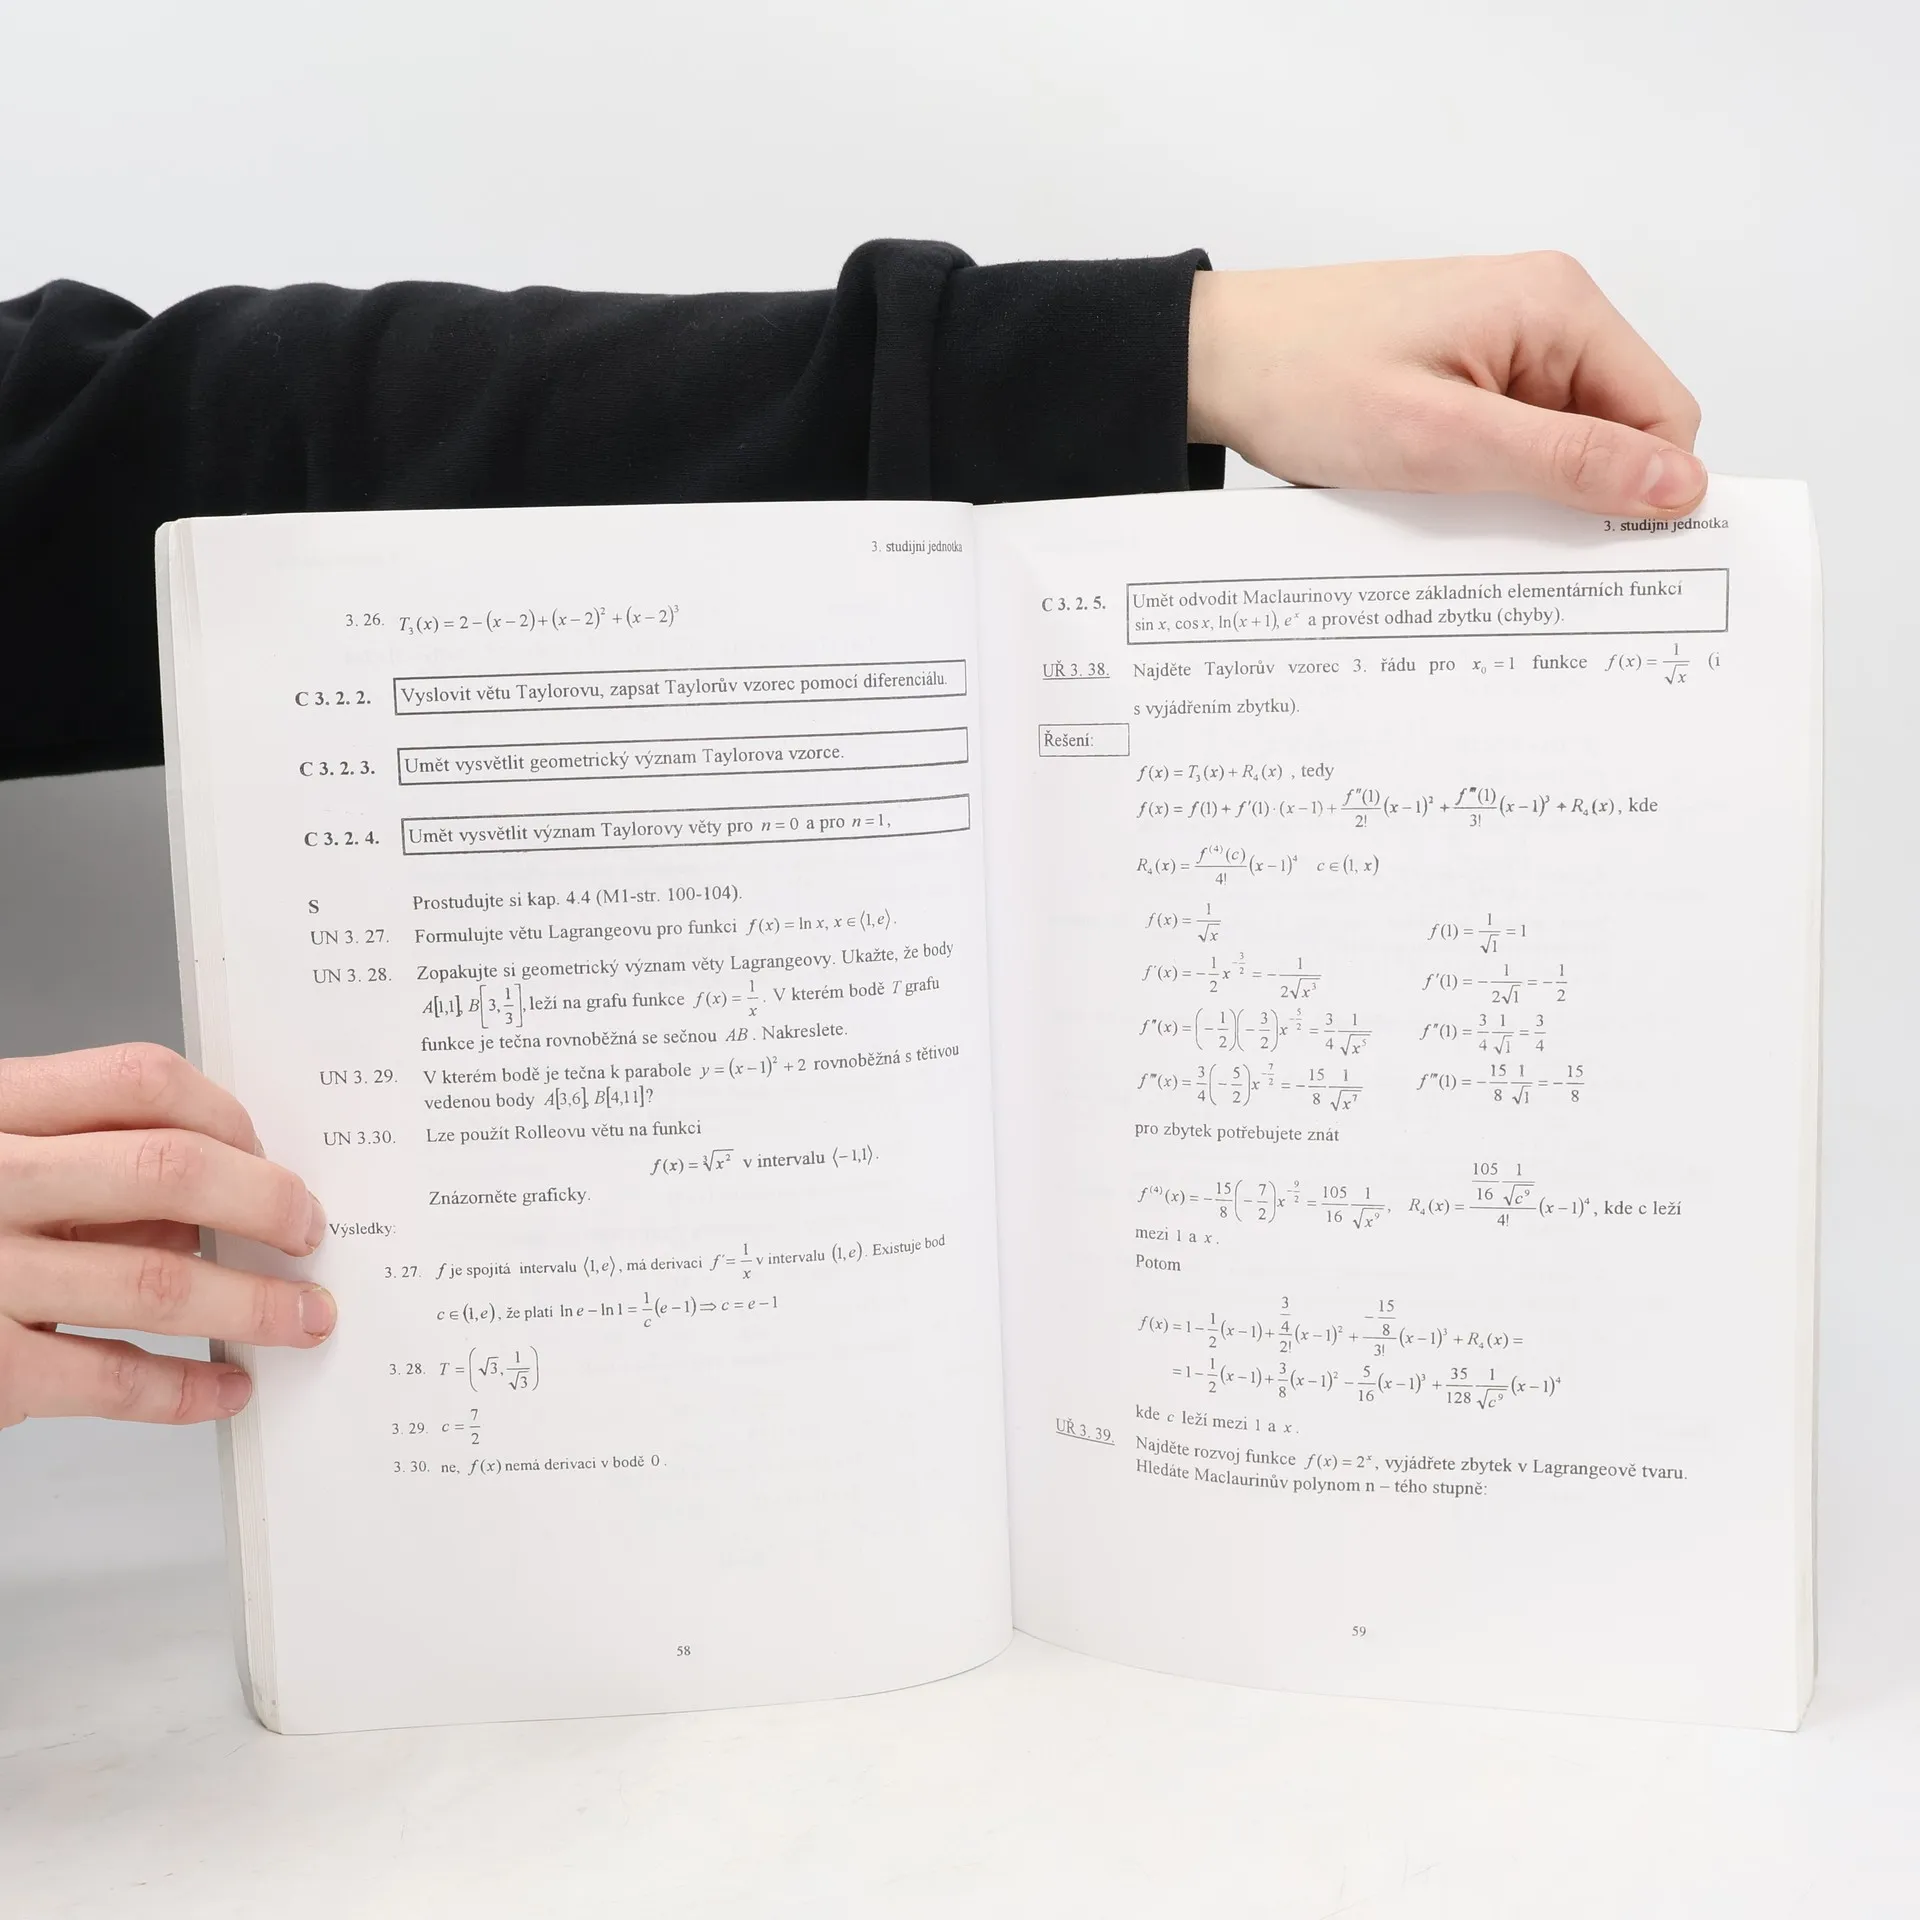 3. studijní jednotka
3. 26. T₃(x) = 2 − (x − 2) + (x − 2)² + (x − 2)³
C 3. 2. 2. Vyslovit větu Taylorovu, zapsat Taylorův vzorec pomocí diferenciálu.
C 3. 2. 3. Umět vysvětlit geometrický význam Taylorova vzorce.
C 3. 2. 4. Umět vysvětlit význam Taylorovy věty pro n = 0 a pro n = 1,
S Prostudujte si kap. 4.4 (M1-str. 100-104).
UN 3. 27. Formulujte větu Lagrangeovu pro funkci f(x) = ln x, x ∈ ⟨1, e⟩.
UN 3. 28. Zopakujte si geometrický význam věty Lagrangeovy. Ukažte, že body
A[1,1], B[3, 1/3], leží na grafu funkce f(x) = 1/x. V kterém bodě T grafu
funkce je tečna rovnoběžná se sečnou AB. Nakreslete.
UN 3. 29. V kterém bodě je tečna k parabole y = (x − 1)² + 2 rovnoběžná s tětivou
vedenou body A[3,6], B[4,11]?
UN 3.30. Lze použít Rolleovu větu na funkci
f(x) = ∛x² v intervalu ⟨−1,1⟩.
Znázorněte graficky.
Výsledky:
3. 27. f je spojitá intervalu ⟨1, e⟩, má derivaci f′ = 1/x v intervalu (1, e). Existuje bod
c ∈ (1, e), že platí ln e − ln 1 = 1/c (e − 1) ⇒ c = e − 1
3. 28. T = (√3, 1/√3)
3. 29. c = 7/2
3. 30. ne, f(x) nemá derivaci v bodě 0.
58
3. studijní jednotka
C 3. 2. 5. Umět odvodit Maclaurinovy vzorce základních elementárních funkcí
sin x, cos x, ln(x + 1), eˣ a provést odhad zbytku (chyby).
UŘ 3. 38. Najděte Taylorův vzorec 3. řádu pro x₀ = 1 funkce f(x) = 1/√x (i
s vyjádřením zbytku).
Řešení:
f(x) = T₃(x) + R₄(x) , tedy
f(x) = f(1) + f′(1)·(x − 1) + f″(1)/2! (x − 1)² + f‴(1)/3! (x − 1)³ + R₄(x), kde
R₄(x) = f⁽⁴⁾(c)/4! (x − 1)⁴ c ∈ (1, x)
f(x) = 1/√x f(1) = 1/√1 = 1
f′(x) = −1/2 x^(−3/2) = −1/(2√x³) f′(1) = −1/(2√1) = −1/2
f″(x) = (−1/2)(−3/2)x^(−5/2) = 3/4 1/√x⁵ f″(1) = 3/4 1/√1 = 3/4
f‴(x) = 3/4 (−5/2)x^(−7/2) = −15/8 1/√x⁷ f‴(1) = −15/8 1/√1 = −15/8
pro zbytek potřebujete znát
f⁽⁴⁾(x) = −15/8 (−7/2)x^(−9/2) = 105/16 1/√x⁹, R₄(x) = (105/16 1/√c⁹)/4! (x − 1)⁴, kde c leží
mezi 1 a x.
Potom
f(x) = 1 − 1/2 (x − 1) + (3/4)/2! (x − 1)² + (−15/8)/3! (x − 1)³ + R₄(x) =
= 1 − 1/2 (x − 1) + 3/8 (x − 1)² − 5/16 (x − 1)³ + 35/128 1/√c⁹ (x − 1)⁴
kde c leží mezi 1 a x.
UŘ 3. 39. Najděte rozvoj funkce f(x) = 2ˣ, vyjádřete zbytek v Lagrangeově tvaru.
Hledáte Maclaurinův polynom n – tého stupně:
59